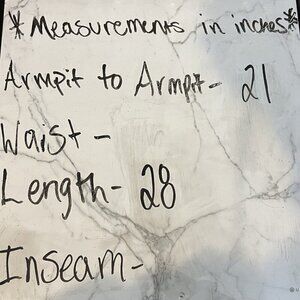 * Measurements in inches*
Armpit to Armpit- 21
Waist -
Length- 28
Inseam-